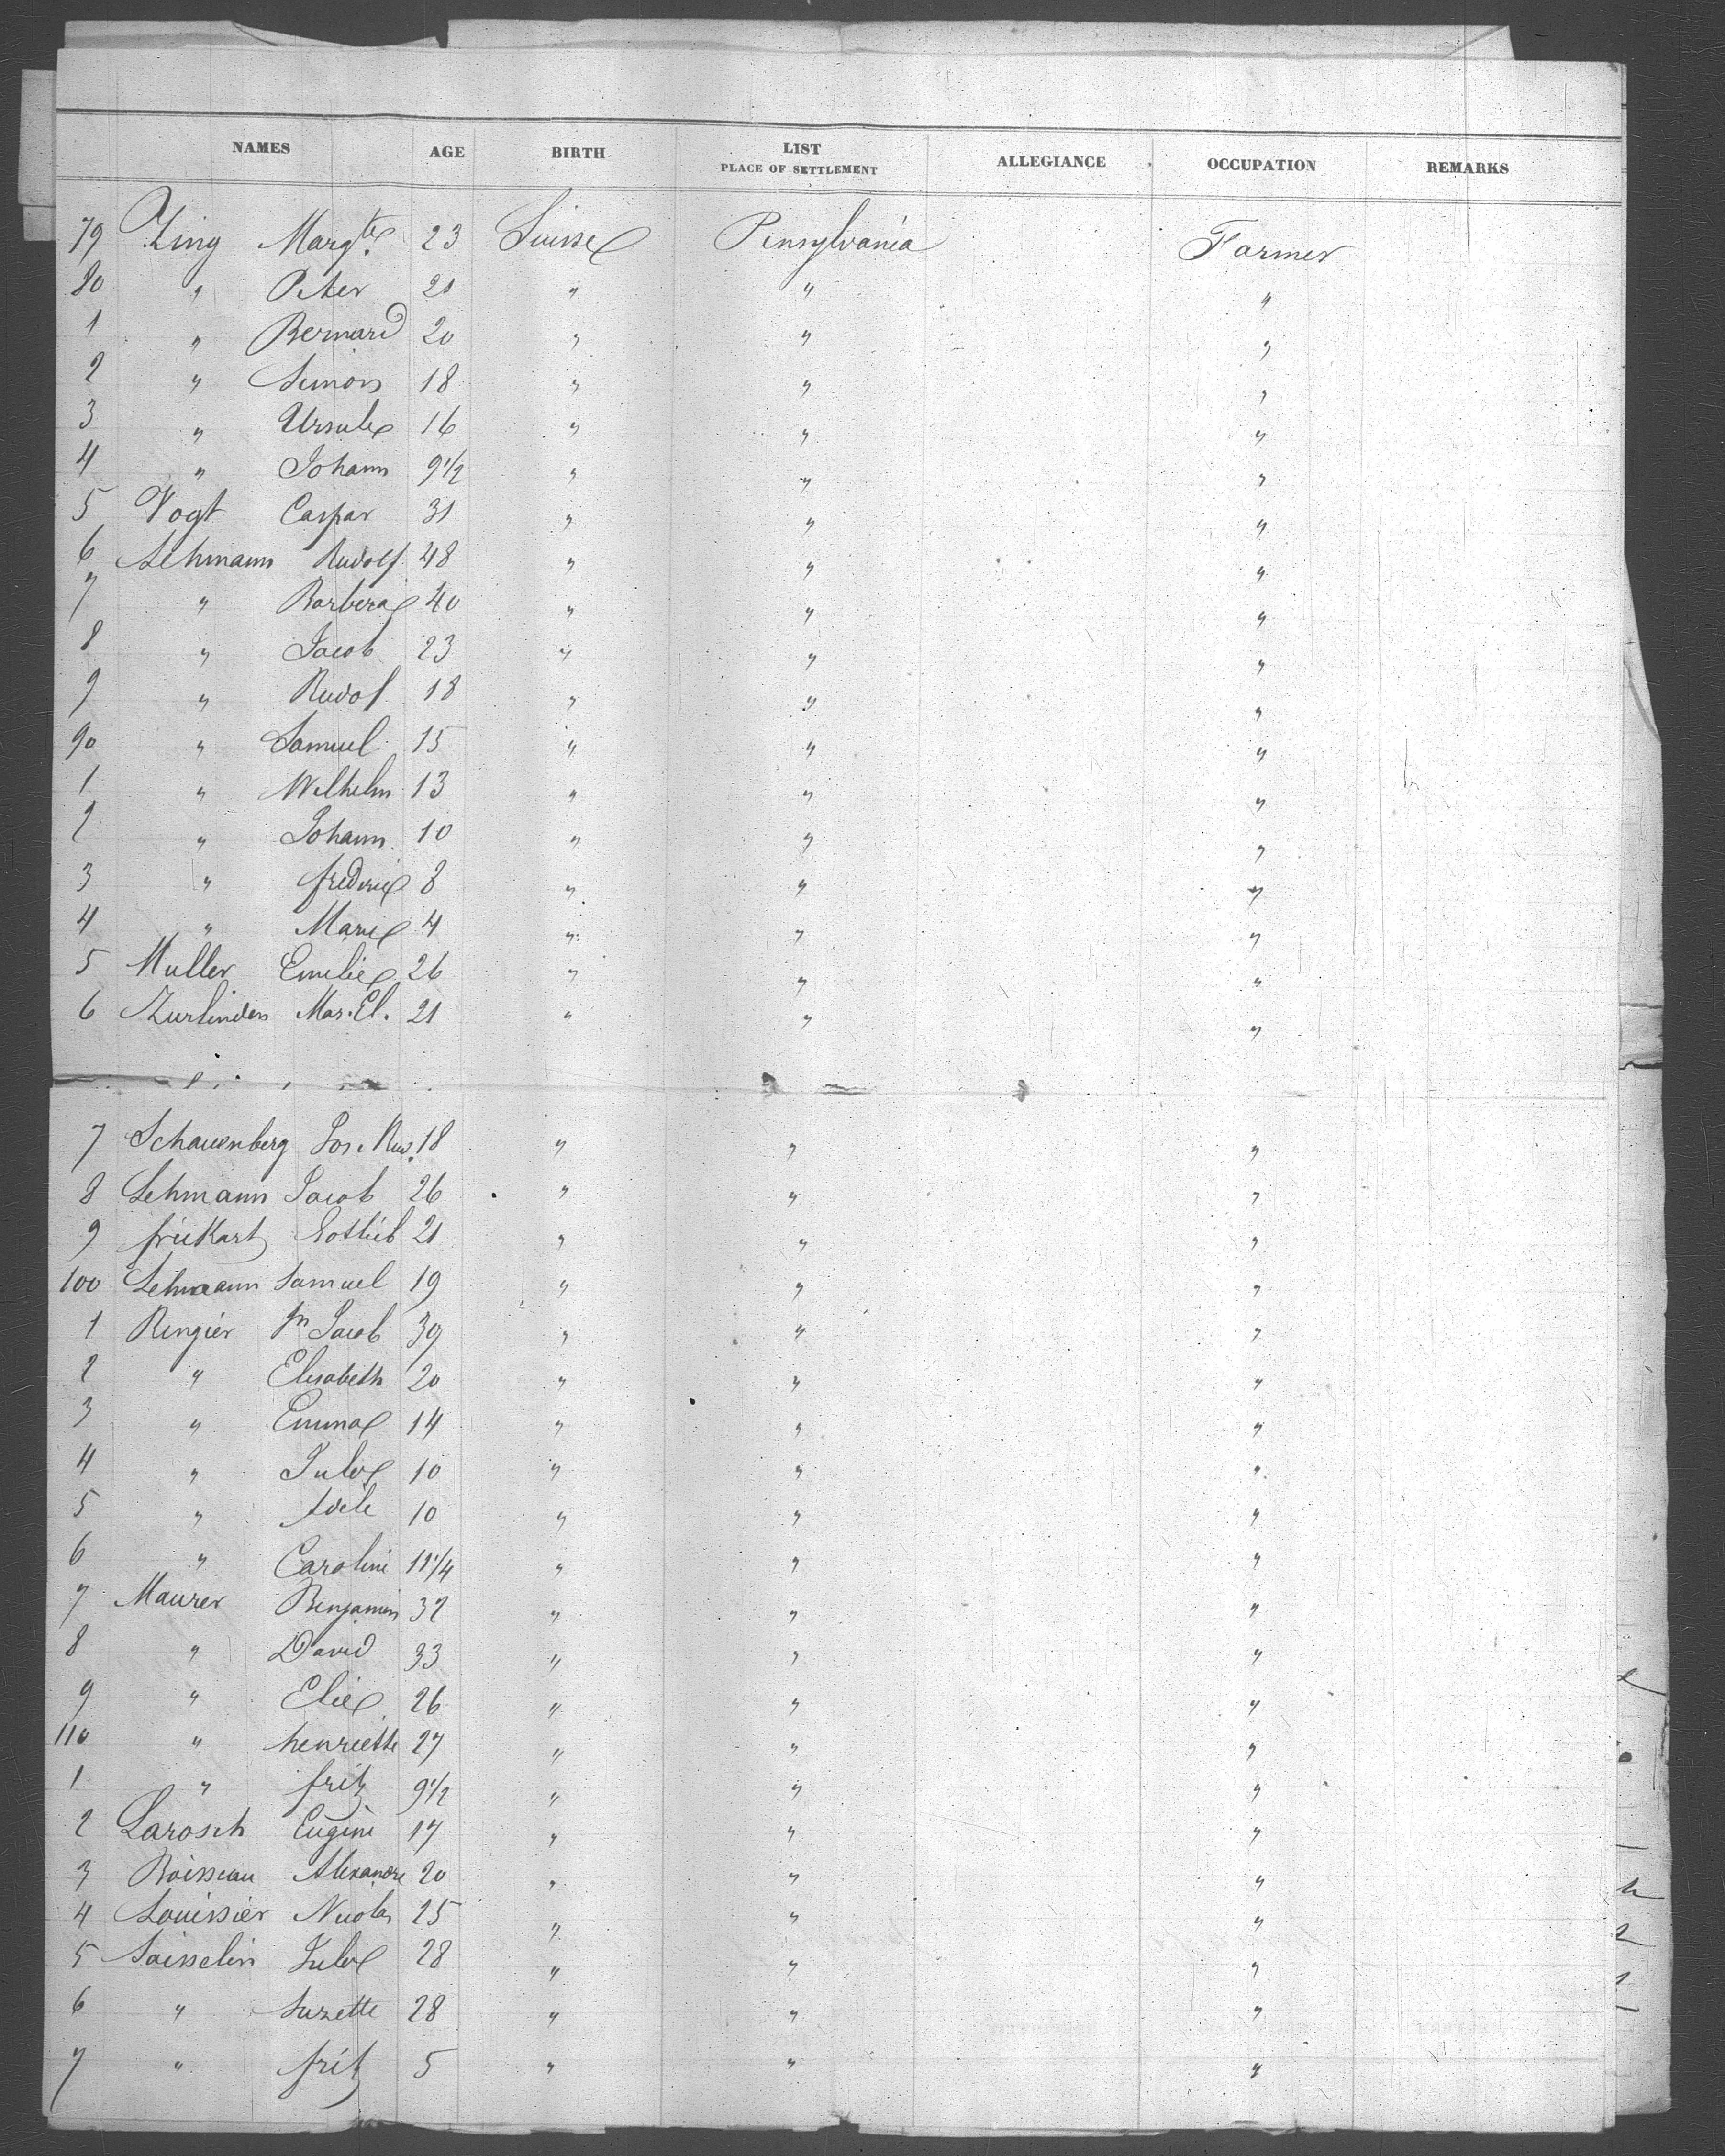 NAMES AGE BIRTH LIST PLACE OF SETTLEMENT ALLEGIANCE OCCUPATION REMARKS
79 Zing Margte. 23 Suisse Pensylvania Farmer
80 " Peter 21 " " "
1 " Bernard 20 " " "
2 " Simon 18 " " "
3 " Ursule 16 " " "
4 " Johann 9 1/2 " " "
5 Vogt Caspar 31 " " "
6 Lehmann Rudolf 48 " " "
7 " Barbera 40 " " "
8 " Jacob 23 " " "
9 " Rudof 18 " " "
90 " Samuel 15 " " "
1 " Wilhelm 13 " " "
2 " Johann 10 " " "
3 " frederic 8 " " "
4 " Marie 4 " " "
5 Muller Emelie 26 " " "
6 Zurlinden Mar. El. 21 " " "
7 Schauenberg Jos. 18 " " "
8 Lehmann Jacob 26 " " "
9 frickart Gotlieb 21 " " "
100 Lehmann Samuel 19 " " "
1 Ringier Jn Jacob 39 " " "
2 " Elisabeth 20 " " "
3 " Emma 14 " " "
4 " Jules 10 " " "
5 " Adele 10 " " "
6 " Caroline 11 1/4 " " "
7 Maurer Benjamin 32 " " "
8 " David 33 " " "
9 " Elie 26 " " "
110 " henriette 27 " " "
1 " fritz 9 1/2 " " "
2 Larosch Eugene 17 " " "
3 Boisseau Alexandre 20 " " "
4 Louissier Nicolas 25 " " "
5 Soisselin Jules 28 " " "
6 " Suzette 28 " " "
7 " fritz 5 " " "